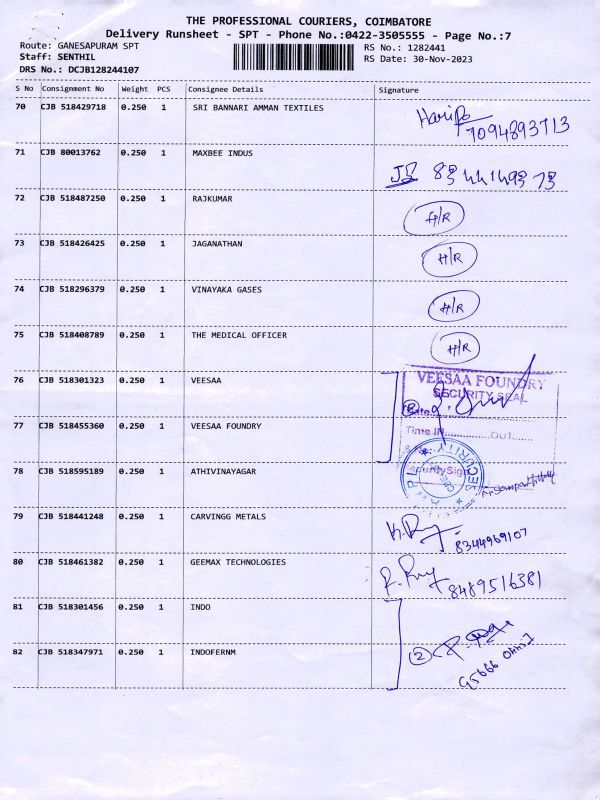 THE PROFESSIONAL COURIERS, COIMBATORE
Delivery Runsheet - SPT - Phone No.:0422-3505555 - Page No.:7
Route: GANESAPURAM SPT
RS No.: 1282441
Staff: SENTHIL
RS Date: 30-Nov-2023
DRS No.: DCJB128244107
S No Consignment No Weight PCS Consignee Details Signature
70 CJB 518429718 0.250 1 SRI BANNARI AMMAN TEXTILES
7094893713
71 CJB 80013762 0.250 1 MAXBEE INDUS
72 CJB 518487250 0.250 1 RAJKUMAR H/R
73 CJB 518426425 0.250 1 JAGANATHAN H/R
74 CJB 518296379 0.250 1 VINAYAKA GASES H/R
75 CJB 518408789 0.250 1 THE MEDICAL OFFICER H/R
76 CJB 518301323 0.250 1 VEESAA
VEESAA FOUNDRY
SECURITY SEAL
Date
77 CJB 518455360 0.250 1 VEESAA FOUNDRY
Time IN...............OUT.......
78 CJB 518595189 0.250 1 ATHIVINAYAGAR
SECURITY
79 CJB 518441248 0.250 1 CARVINGG METALS
8344969107
80 CJB 518461382 0.250 1 GEEMAX TECHNOLOGIES
8489516381
81 CJB 518301456 0.250 1 INDO
82 CJB 518347971 0.250 1 INDOFERNM
2